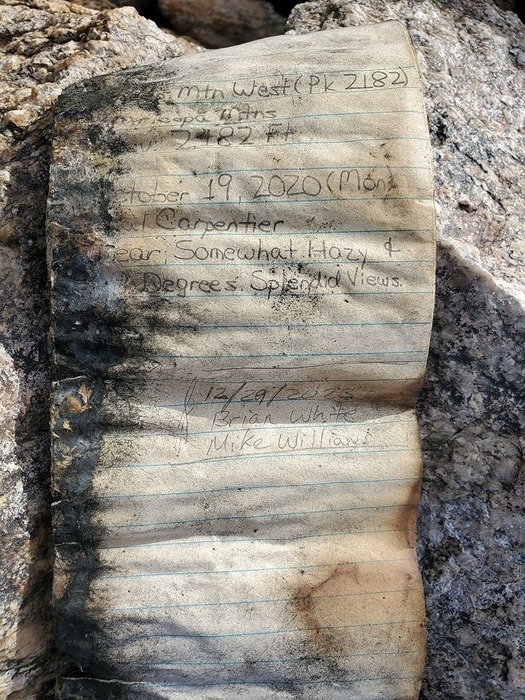 Mtn West (Pk 2182)
Mtns
2182 Ft
tober 19, 2020 (Mon)
Carpentier
ear. Somewhat Hazy &
Degrees. Splendid Views.
12/29/2025
Brian White
Mike Williams